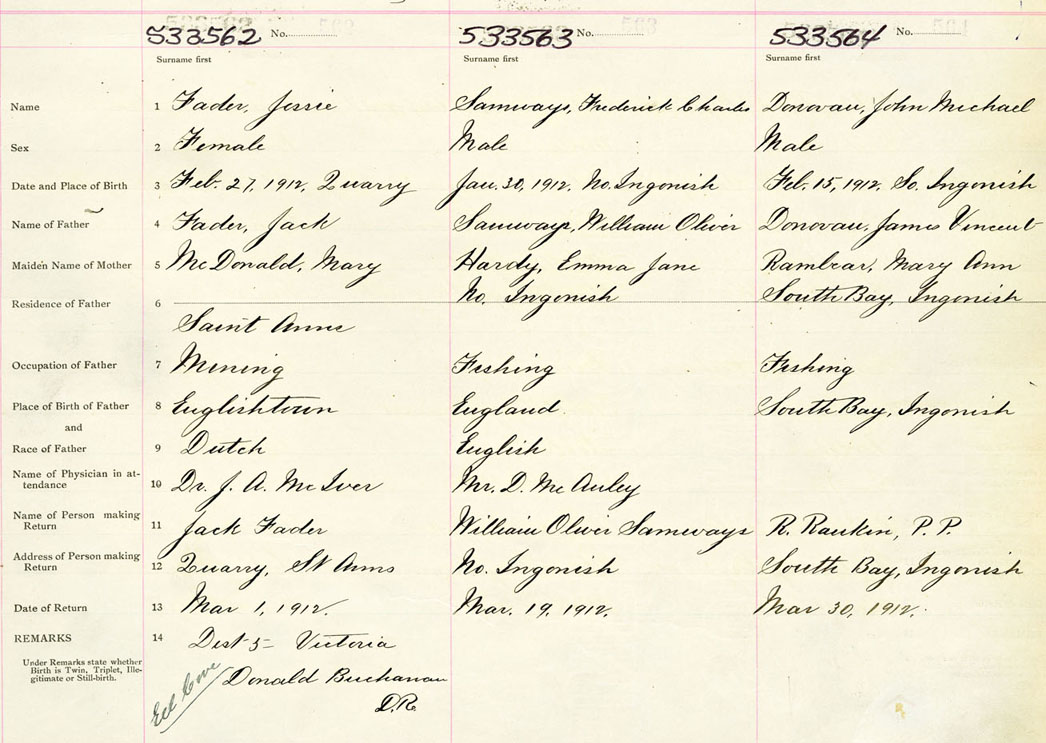 533562 No. 533563 No. 533564 No.
Surname first Surname first Surname first
Name 1 Fader, Jessie Samways, Frederick Charles Donovan, John Michael
Sex 2 Female Male Male
Date and Place of Birth 3 Feb. 27, 1912, Quarry Jan. 30, 1912, No. Ingonish Feb. 15, 1912, So. Ingonish
Name of Father 4 Fader, Jack Samways, William Oliver Donovan, James Vincent
Maiden Name of Mother 5 McDonald, Mary Hardy, Emma Jane Rambear, Mary Ann
Residence of Father 6 No. Ingonish South Bay, Ingonish
Saint Anns
Occupation of Father 7 Mining Fishing Fishing
Place of Birth of Father 8 Englishtown England South Bay, Ingonish
and
Race of Father 9 Dutch English
Name of Physician in at-
tendance 10 Dr. J. A. McIver Mr. D. McAuley
Name of Person making
Return 11 Jack Fader William Oliver Samways R. Rankin, P. P.
Address of Person making
Return 12 Quarry, St Anns No. Ingonish South Bay, Ingonish
Date of Return 13 Mar 1, 1912. Mar. 19, 1912. Mar 30, 1912.
REMARKS 14 Dist 5 = Victoria
Under Remarks state whether
Birth is Twin, Triplet, Ille-
gitimate or Still-birth.
Eel Cove Donald Buchanan
D.R.